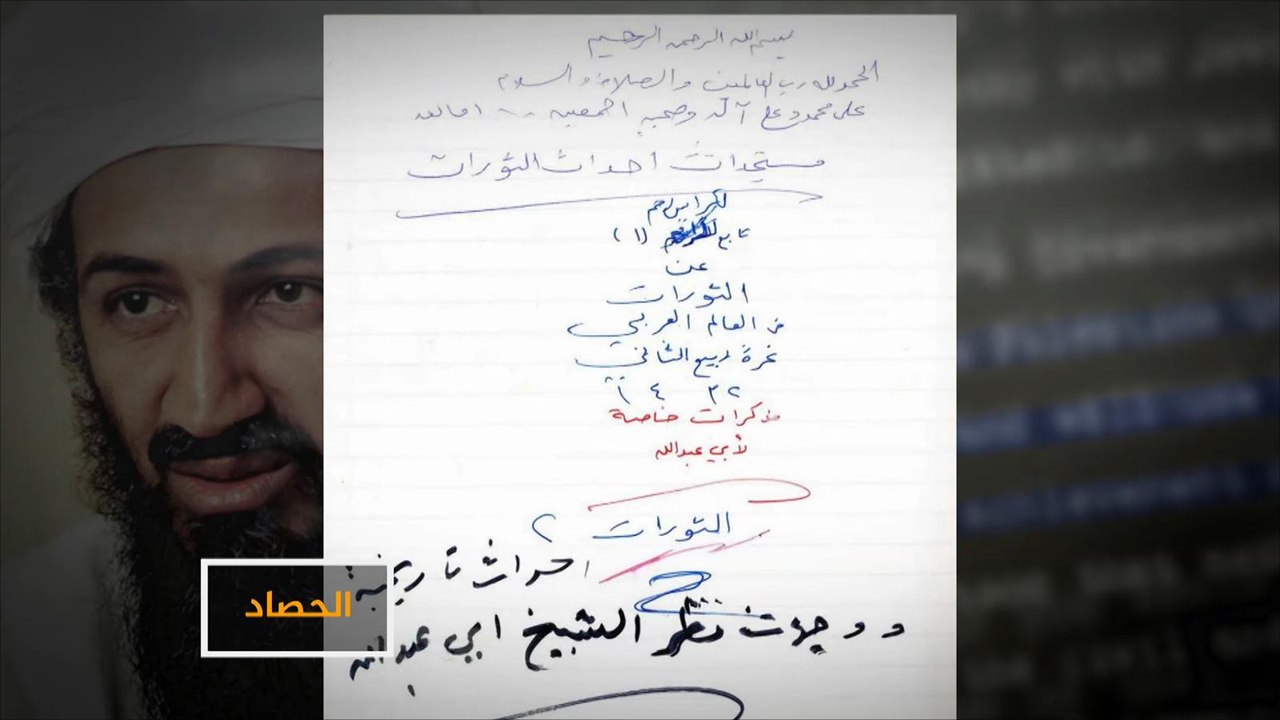 بسم الله الرحمن الرحيم
الحمد لله رب العالمين والصلاة والسلام
على محمد وعلى آله وصحبه أجمعين .. اما بعد
مستجدات أحداث الثورات
تابع (١)
عن
الثورات
في العالم العربي
غرة ربيع الثاني
١٤٣٢
مذكرات خاصة
لأبي عبدالله
الثورات ٢
احداث تاريخية
ووجهات نظر الشيخ ابي عبدالله
الحصاد